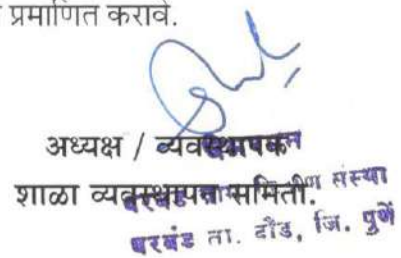 प्रमाणित करावे.
अध्यक्ष / व्यवस्थापक
शाळा व्यवस्थापन समिती.
संस्था
वरवंड ता. दौंड, जि. पुणें